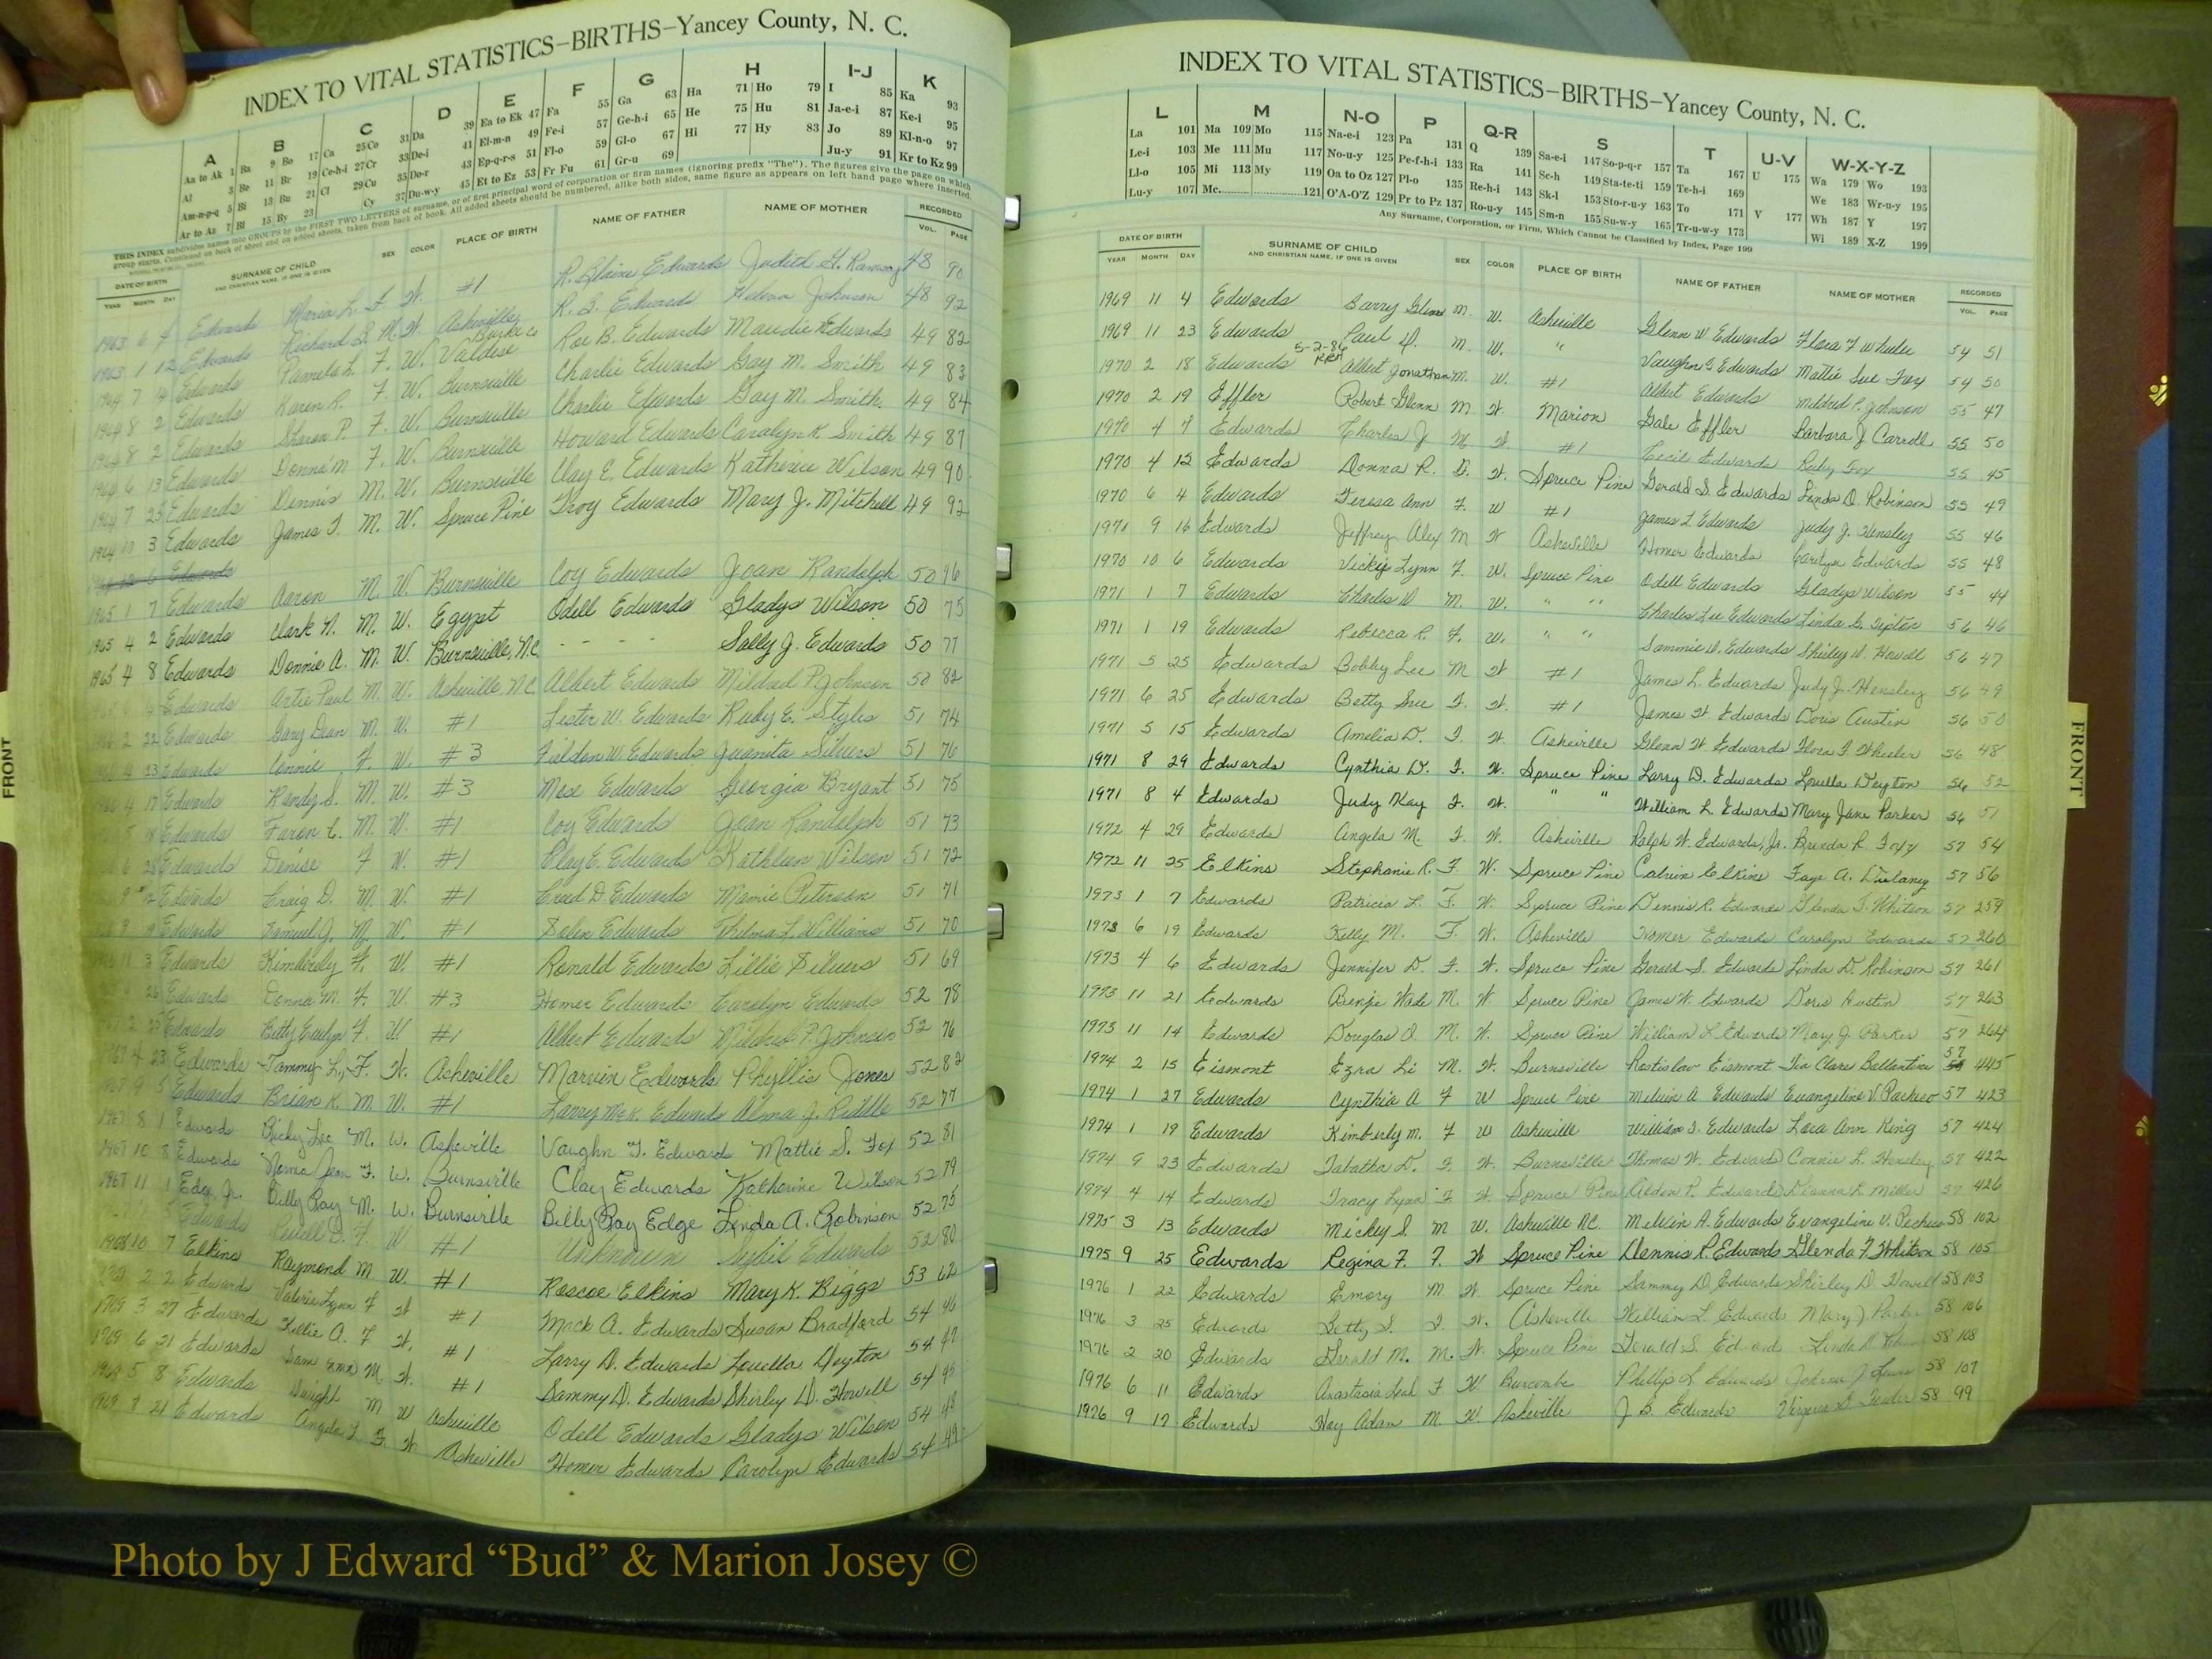 INDEX TO VITAL STATISTICS–BIRTHS–Yancey County, N. C.
A B C D E F G H I-J K
Aa to Ak 1 Ba 9 Bo 17 Ca 25 Co 31 Da 39 Ea to Ek 47 Fa 55 Ga 63 Ha 71 Ho 79 I 85 Ka 93
Al 3 Be 11 Br 19 Ce-h-i 27 Cr 33 De-i 41 El-m-n 49 Fe-i 57 Ge-h-i 65 He 75 Hu 81 Ja-e-i 87 Ke-i 95
Am-n-p-q 5 Bi 13 Bu 21 Cl 29 Cu 35 Do-r 43 Ep-q-r-s 51 Fl-o 59 Gl-o 67 Hi 77 Hy 83 Jo 89 Kl-n-o 97
Ar to Az 7 Bl 15 By 23 Cy 37 Du-w-y 45 Et to Ez 53 Fr Fu 61 Gr-u 69 Ju-y 91 Kr to Kz 99
THIS INDEX subdivides names into GROUPS by the FIRST TWO LETTERS of surname, or of first principal word of corporation or firm names (ignoring prefix "The"). The figures give the page on which
group starts. Continued on back of sheet and on added sheets, taken from back of book. All added sheets should be numbered, alike both sides, same figure as appears on left hand page where inserted.
DATE OF BIRTH SURNAME OF CHILD SEX COLOR PLACE OF BIRTH NAME OF FATHER NAME OF MOTHER RECORDED
YEAR MONTH DAY AND CHRISTIAN NAME, IF ONE IS GIVEN VOL. PAGE
1963 6 Edwards Maria L. F. W. #1 R. Blaine Edwards Judith G. Ramsey 48 90
1963 1 12 Edwards Richard B. M. W. Asheville R. B. Edwards Helena Johnson 48 92
Burke Co
1964 7 4 Edwards Pamela L. F. W. Valdese Roe B. Edwards Maudie Edwards 49 82
1964 8 2 Edwards Karen R. F. W. Burnsville Charlie Edwards Gay M. Smith 49 83
1964 8 2 Edwards Sharon P. F. W. Burnsville Charlie Edwards Gay M. Smith. 49 84
1964 6 13 Edwards Donna M F. W. Burnsville Howard Edwards Caralyn K. Smith 49 87
1964 7 23 Edwards Dennis M. W. Burnsville Clay E. Edwards Katherine Wilson 49 90
1964 10 3 Edwards James T. M. W. Spruce Pine Troy Edwards Mary J. Mitchell 49 92
Edwards
1965 1 7 Edwards Aaron M. W. Burnsville Coy Edwards Joan Randolph 50 76
1965 4 2 Edwards Clark N. M. W. Egypt Odell Edwards Gladys Wilson 50 75
1965 4 8 Edwards Donnie A. M. W. Burnsville, N.C. - - - - Sally J. Edwards 50 77
Edwards Artie Paul M. W. Asheville NC Albert Edwards Mildred P. Johnson 50 82
2 22 Edwards Gary Dean M. W. #1 Lester W. Edwards Ruby E. Styles 51 74
23 Edwards Connie F. W. #3 Fieldon W. Edwards Juanita Silvers 51 76
4 17 Edwards Randy S. M. W. #3 Mose Edwards Georgia Bryant 51 75
Edwards Faron C. M. W. #1 Coy Edwards Joan Randolph 51 73
6 25 Edwards Denise F W. #1 Clay E. Edwards Kathleen Wilson 51 72
9 Edwards Craig D. M. W. #1 Brad D Edwards Mamie Peterson 51 71
9 Edwards Samuel J. M. W. #1 Edwards Thelma L. Williams 51 70
11 3 Edwards Kimberly F. W. #1 Ronald Edwards Lillie Silvers 51 69
26 Edwards Donna M. F. W. #3 Homer Edwards Carolyn Edwards 52 78
2 Edwards Betty Evelyn F. W. #1 Albert Edwards Mildred P. Johnson 52 76
1967 4 23 Edwards Tammy L. F. W. Asheville Marvin Edwards Phyllis Jones 52 82
1967 9 5 Edwards Brian K. M. W. #1 Larry McK. Edwards Alma J. Riddle 52 77
1967 8 1 Edwards Ricky Lee M. W. Asheville Vaughn G. Edwards Mattie S. Fox 52 81
1967 10 8 Edwards Norma Jean F. W. Burnsville Clay Edwards Katherine Wilson 52 79
1967 11 1 Edge, Jr. Billy Ray M. W. Burnsville Billy Ray Edge Linda A. Robinson 52 75
Edwards F. W #1 Unknown Sybil Edwards 52 80
1968 10 7 Elkins Raymond M W. #1 Roscoe Elkins Mary K. Biggs 53 62
2 2 Edwards Valerie Lynn F W #1 Mack A. Edwards Susan Bradford 54 46
1969 3 27 Edwards Kellie A. F W. #1 Larry D. Edwards Louella Deyton 54 47
1969 6 21 Edwards Sam M. W. #1 Sammy D. Edwards Shirley D. Howell 54 45
1968 5 8 Edwards Dwight M W Asheville Odell Edwards Gladys Wilson 54 48
1969 8 21 Edwards Angela F. W. Asheville Homer Edwards Carolyn Edwards 54 49
FRONT
INDEX TO VITAL STATISTICS–BIRTHS–Yancey County, N. C.
L M N-O P Q-R S T U-V W-X-Y-Z
La 101 Ma 109 Mo 115 Na-e-i 123 Pa 131 Q 139 Sa-e-i 147 So-p-q-r 157 Ta 167 U 175 Wa 179 Wo 193
Le-i 103 Me 111 Mu 117 No-u-y 125 Pe-f-h-i 133 Ra 141 Sc-h 149 Sta-te-ti 159 Te-h-i 169 We 183 Wr-u-y 195
Ll-o 105 Mi 113 My 119 Oa to Oz 127 Pl-o 135 Re-h-i 143 Sk-l 153 Sto-r-u-y 163 To 171 V 177 Wh 187 Y 197
Lu-y 107 Mc 121 O'A-O'Z 129 Pr to Pz 137 Ro-u-y 145 Sm-n 155 Su-w-y 165 Tr-u-w-y 173 Wi 189 X-Z 199
Any Surname, Corporation, or Firm, Which Cannot be Classified by Index, Page 199
DATE OF BIRTH SURNAME OF CHILD SEX COLOR PLACE OF BIRTH NAME OF FATHER NAME OF MOTHER RECORDED
YEAR MONTH DAY AND CHRISTIAN NAME, IF ONE IS GIVEN VOL. PAGE
1969 11 4 Edwards Barry Glenn M. W. Asheville Glenn W Edwards Flora F Wheeler 54 51
1969 11 23 Edwards Paul D. M. W. " Vaughn G Edwards Mattie Sue Fox 54 50
5-2-86
1970 2 18 Edwards Albert Jonathan M. W. #1 Albert Edwards Mildred P. Johnson 55 47
1970 2 19 Effler Robert Glenn M W. Marion Gale Effler Barbara J Carroll 55 50
1970 4 7 Edwards Charles J M W #1 Cecil Edwards Ruby Fox 55 45
1970 4 12 Edwards Donna R. F. W. Spruce Pine Gerald S. Edwards Linda D. Robinson 55 49
1970 6 4 Edwards Teresa Ann F. W #1 James L Edwards Judy J. Hensley 55 46
1971 9 16 Edwards Jeffrey Alex M W Asheville Homer Edwards Carolyn Edwards 55 48
1970 10 6 Edwards Vickie Lynn F. W. Spruce Pine Odell Edwards Gladys Wilson 55 44
1971 1 7 Edwards Charles D M. W. " " Charles Lee Edwards Linda G. Tipton 56 46
1971 1 19 Edwards Rebecca R. F. W. " " Sammie D. Edwards Shirley D. Howell 56 47
1971 5 25 Edwards Bobby Lee M W #1 James L. Edwards Judy J. Hensley 56 49
1971 6 25 Edwards Betty Sue F. W. #1 James W. Edwards Doris Austin 56 50
1971 5 15 Edwards Amelia D. F. W. Asheville Glenn W Edwards Flora F Wheeler 56 48
1971 8 29 Edwards Cynthia D. F. W. Spruce Pine Larry D. Edwards Louella Deyton 56 52
1971 8 4 Edwards Judy Kay F. W. " " William L. Edwards Mary Jane Parker 56 51
1972 4 29 Edwards Angela M. F. W. Asheville Ralph W. Edwards, Jr. Brenda R. 57 54
1972 11 25 Elkins Stephanie R. F W. Spruce Pine Calvin Elkins Faye A. Dulaney 57 56
1973 1 7 Edwards Patricia L. F. W. Spruce Pine Dennis R. Edwards Glenda F. Whitson 57 259
1973 6 19 Edwards Kelly M. F. W. Asheville Homer Edwards Carolyn Edwards 57 260
1973 4 6 Edwards Jennifer D. F. W. Spruce Pine Gerald S. Edwards Linda D. Robinson 57 261
1973 11 21 Edwards Benje Wade M. W. Spruce Pine James W. Edwards Doris Austin 57 263
1973 11 14 Edwards Douglas O. M. W. Spruce Pine William L Edwards Mary J. Parker 57 264
1974 2 15 Eismont Ezra Li M. W. Burnsville Rostislav Eismont Tia Clare Ballantine 57 445
1974 1 27 Edwards Cynthia A F W Spruce Pine Melvin A Edwards Evangeline V. Pacheco 57 423
1974 1 19 Edwards Kimberly M. F W Asheville William T. Edwards Lara Ann King 57 424
1974 9 23 Edwards Tabatha D. F. W. Burnsville Thomas W. Edwards Connie L. Hensley 57 422
1974 4 14 Edwards Tracy Lynn F W. Spruce Pine Alden P. Edwards Deanna L Miller 57 426
1975 3 13 Edwards Mickey S. M W. Asheville NC. Melvin A. Edwards Evangeline V. Pacheco 58 102
1975 9 25 Edwards Regina F. F. W Spruce Pine Dennis R Edwards Glenda F. Whitson 58 105
1976 1 22 Edwards Emory M W. Spruce Pine Sammy D. Edwards Shirley D Howell 58 103
1976 3 25 Edwards Betty S. F. W. Asheville William L. Edwards Mary J Parker 58 106
1976 2 20 Edwards Gerald M. M. W. Spruce Pine Gerald S. Edwards Linda 58 108
1976 6 11 Edwards Anastasia Leah F W Buncombe Phillip L Edwards 58 107
1976 9 17 Edwards Hoy Adam M W Asheville J. B. Edwards Virginia 58 99
FRONT
Photo by J Edward “Bud” & Marion Josey ©